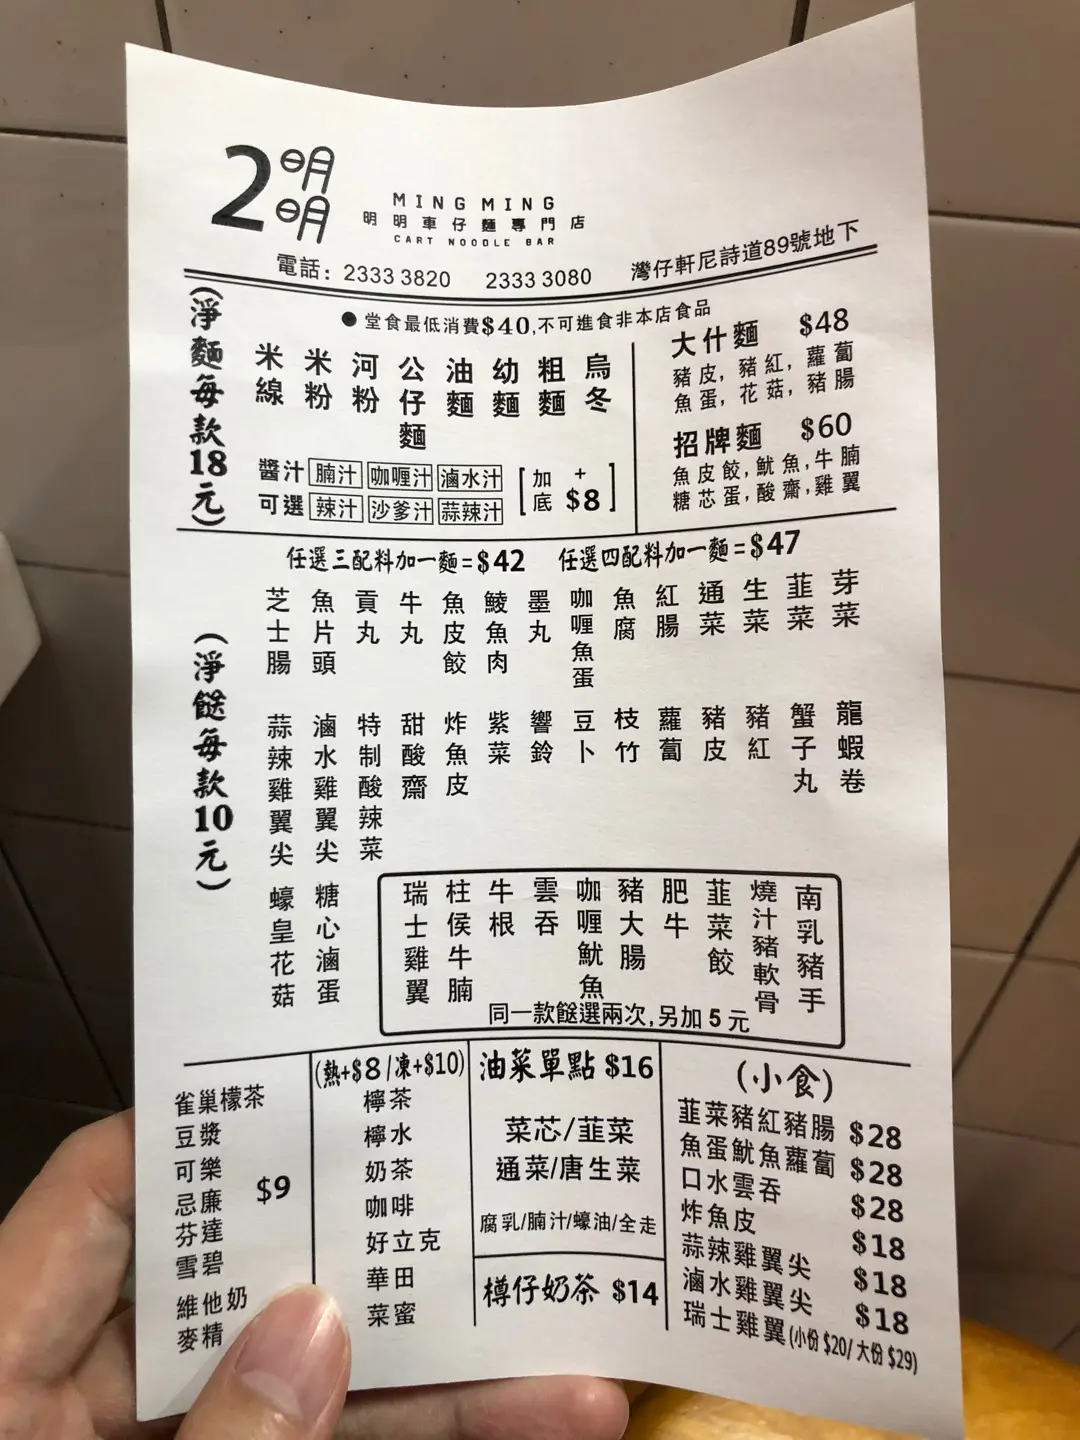 2明明
MING MING
明明車仔麵專門店
CART NOODLE BAR
電話: 2333 3820 2333 3080 灣仔軒尼詩道89號地下
●堂食最低消費$40,不可進食非本店食品
(淨麵每款18元)
米線
米粉
河粉
公仔麵
油麵
幼麵
粗麵
烏冬
醬汁可選
腩汁 咖喱汁 滷水汁
辣汁 沙爹汁 蒜辣汁
[加底 +$8]
大什麵 $48
豬皮, 豬紅, 蘿蔔
魚蛋, 花菇, 豬腸
招牌麵 $60
魚皮餃, 魷魚, 牛腩
糖芯蛋, 酸齋, 雞翼
任選三配料加一麵=$42 任選四配料加一麵=$47
(淨餸每款10元)
芝士腸
魚片頭
貢丸
牛丸
魚皮餃
鯪魚肉
墨丸
咖喱魚蛋
魚腐
紅腸
通菜
生菜
韮菜
芽菜
蒜辣雞翼尖
滷水雞翼尖
特制酸辣菜
甜酸齋
炸魚皮
紫菜
響鈴
豆卜
枝竹
蘿蔔
豬皮
豬紅
蟹子丸
龍蝦卷
蠔皇花菇
糖心滷蛋
瑞士雞翼
柱侯牛腩
牛根
雲吞
咖喱魷魚
豬大腸
肥牛
韮菜餃
燒汁豬軟骨
南乳豬手
同一款餸選兩次,另加5元
雀巢檬茶
豆漿
可樂
忌廉
芬達
雪碧
維他奶
麥精
$9
(熱+$8/凍+$10)
檸茶
檸水
奶茶
咖啡
好立克
華田
菜蜜
油菜單點 $16
菜芯/韮菜
通菜/唐生菜
腐乳/腩汁/蠔油/全走
樽仔奶茶 $14
(小食)
韮菜豬紅豬腸 $28
魚蛋魷魚蘿蔔 $28
口水雲吞 $28
炸魚皮 $18
蒜辣雞翼尖 $18
滷水雞翼尖 $18
瑞士雞翼(小份 $20/大份 $29)